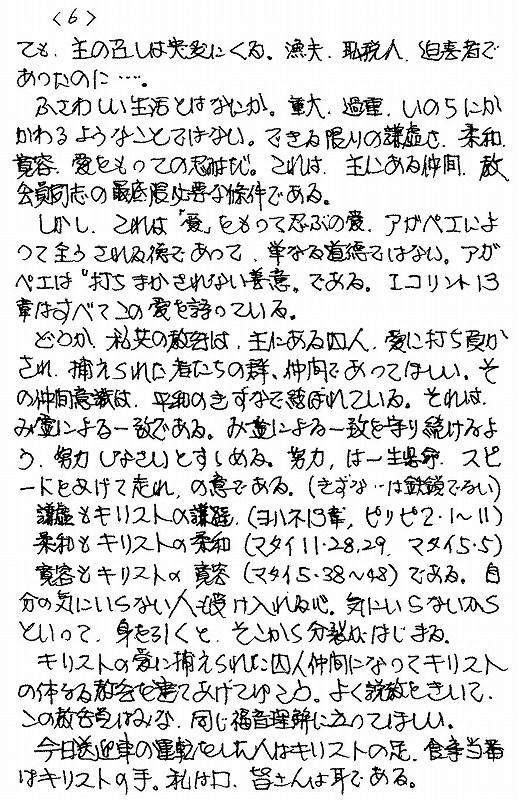 〈6〉
ても、主の召しは失変にくる。漁夫、取税人、迫害者で
あったのに…。
ふさわしい生活とはなにか。重大、過重、いのちにか
かわるようなことではない。できる限りの謙虚さ、柔和、
寛容、愛をもっての忍耐だ。これは、主にある仲間、教
会員同志の最底限必要な條件である。
しかし、これは「愛」をもって忍ぶの愛、アガペエによ
って全うされる徳であって、単なる道徳ではない。アガ
ペエは"打ちまかされない善意"である。Iコリント13
章はすべてこの愛を語っている。
どうか、私共の教会は、主にある囚人、愛に打ち負か
され、捕えられた者たちの群、仲間であってほしい。そ
の仲間意識は、平和のきずなで結ばれている。それは、
み霊による一致である。み霊による一致を守り続けるよ
う、努力しなさいとすゝめる。努力、は一生懸命、スピ
ードをあげて走れ、の意である。(きずな…は鉄鎖でない)
謙虚もキリストの謙虚、(ヨハネ13章、ピリピ2・1〜11)
柔和もキリストの柔和(マタイ11・28,29、マタイ5・5)
寛容もキリストの寛容(マタイ5・38〜48)である。自
分の気にいらない人も受け入れる心。気にいらないから
といって、身を引くと、そこから分裂がはじまる。
キリストの愛に捕えられた囚人仲間になってキリスト
の体なる教会を建てあげてゆこう。よく説教をきいて、
この教会員はみな、同じ福音理解に立ってほしい。
今日送迎車の運転をした人はキリストの足、食事当番
はキリストの手。私は口、皆さんは耳である。